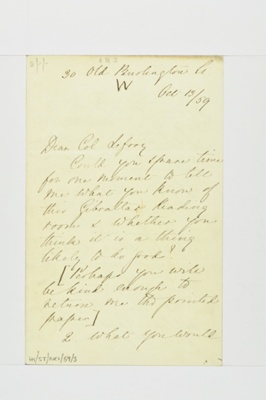 30 Old Burlington St
W
Oct 13/59
Dear Col Lefroy
Could you spare time
for one moment to tell
me what you know of
this Gibraltar Reading
room & whether you
think it is a thing
likely to do good?
[Perhaps you will
be kind enough to
return me the printed
paper]
2. What you would